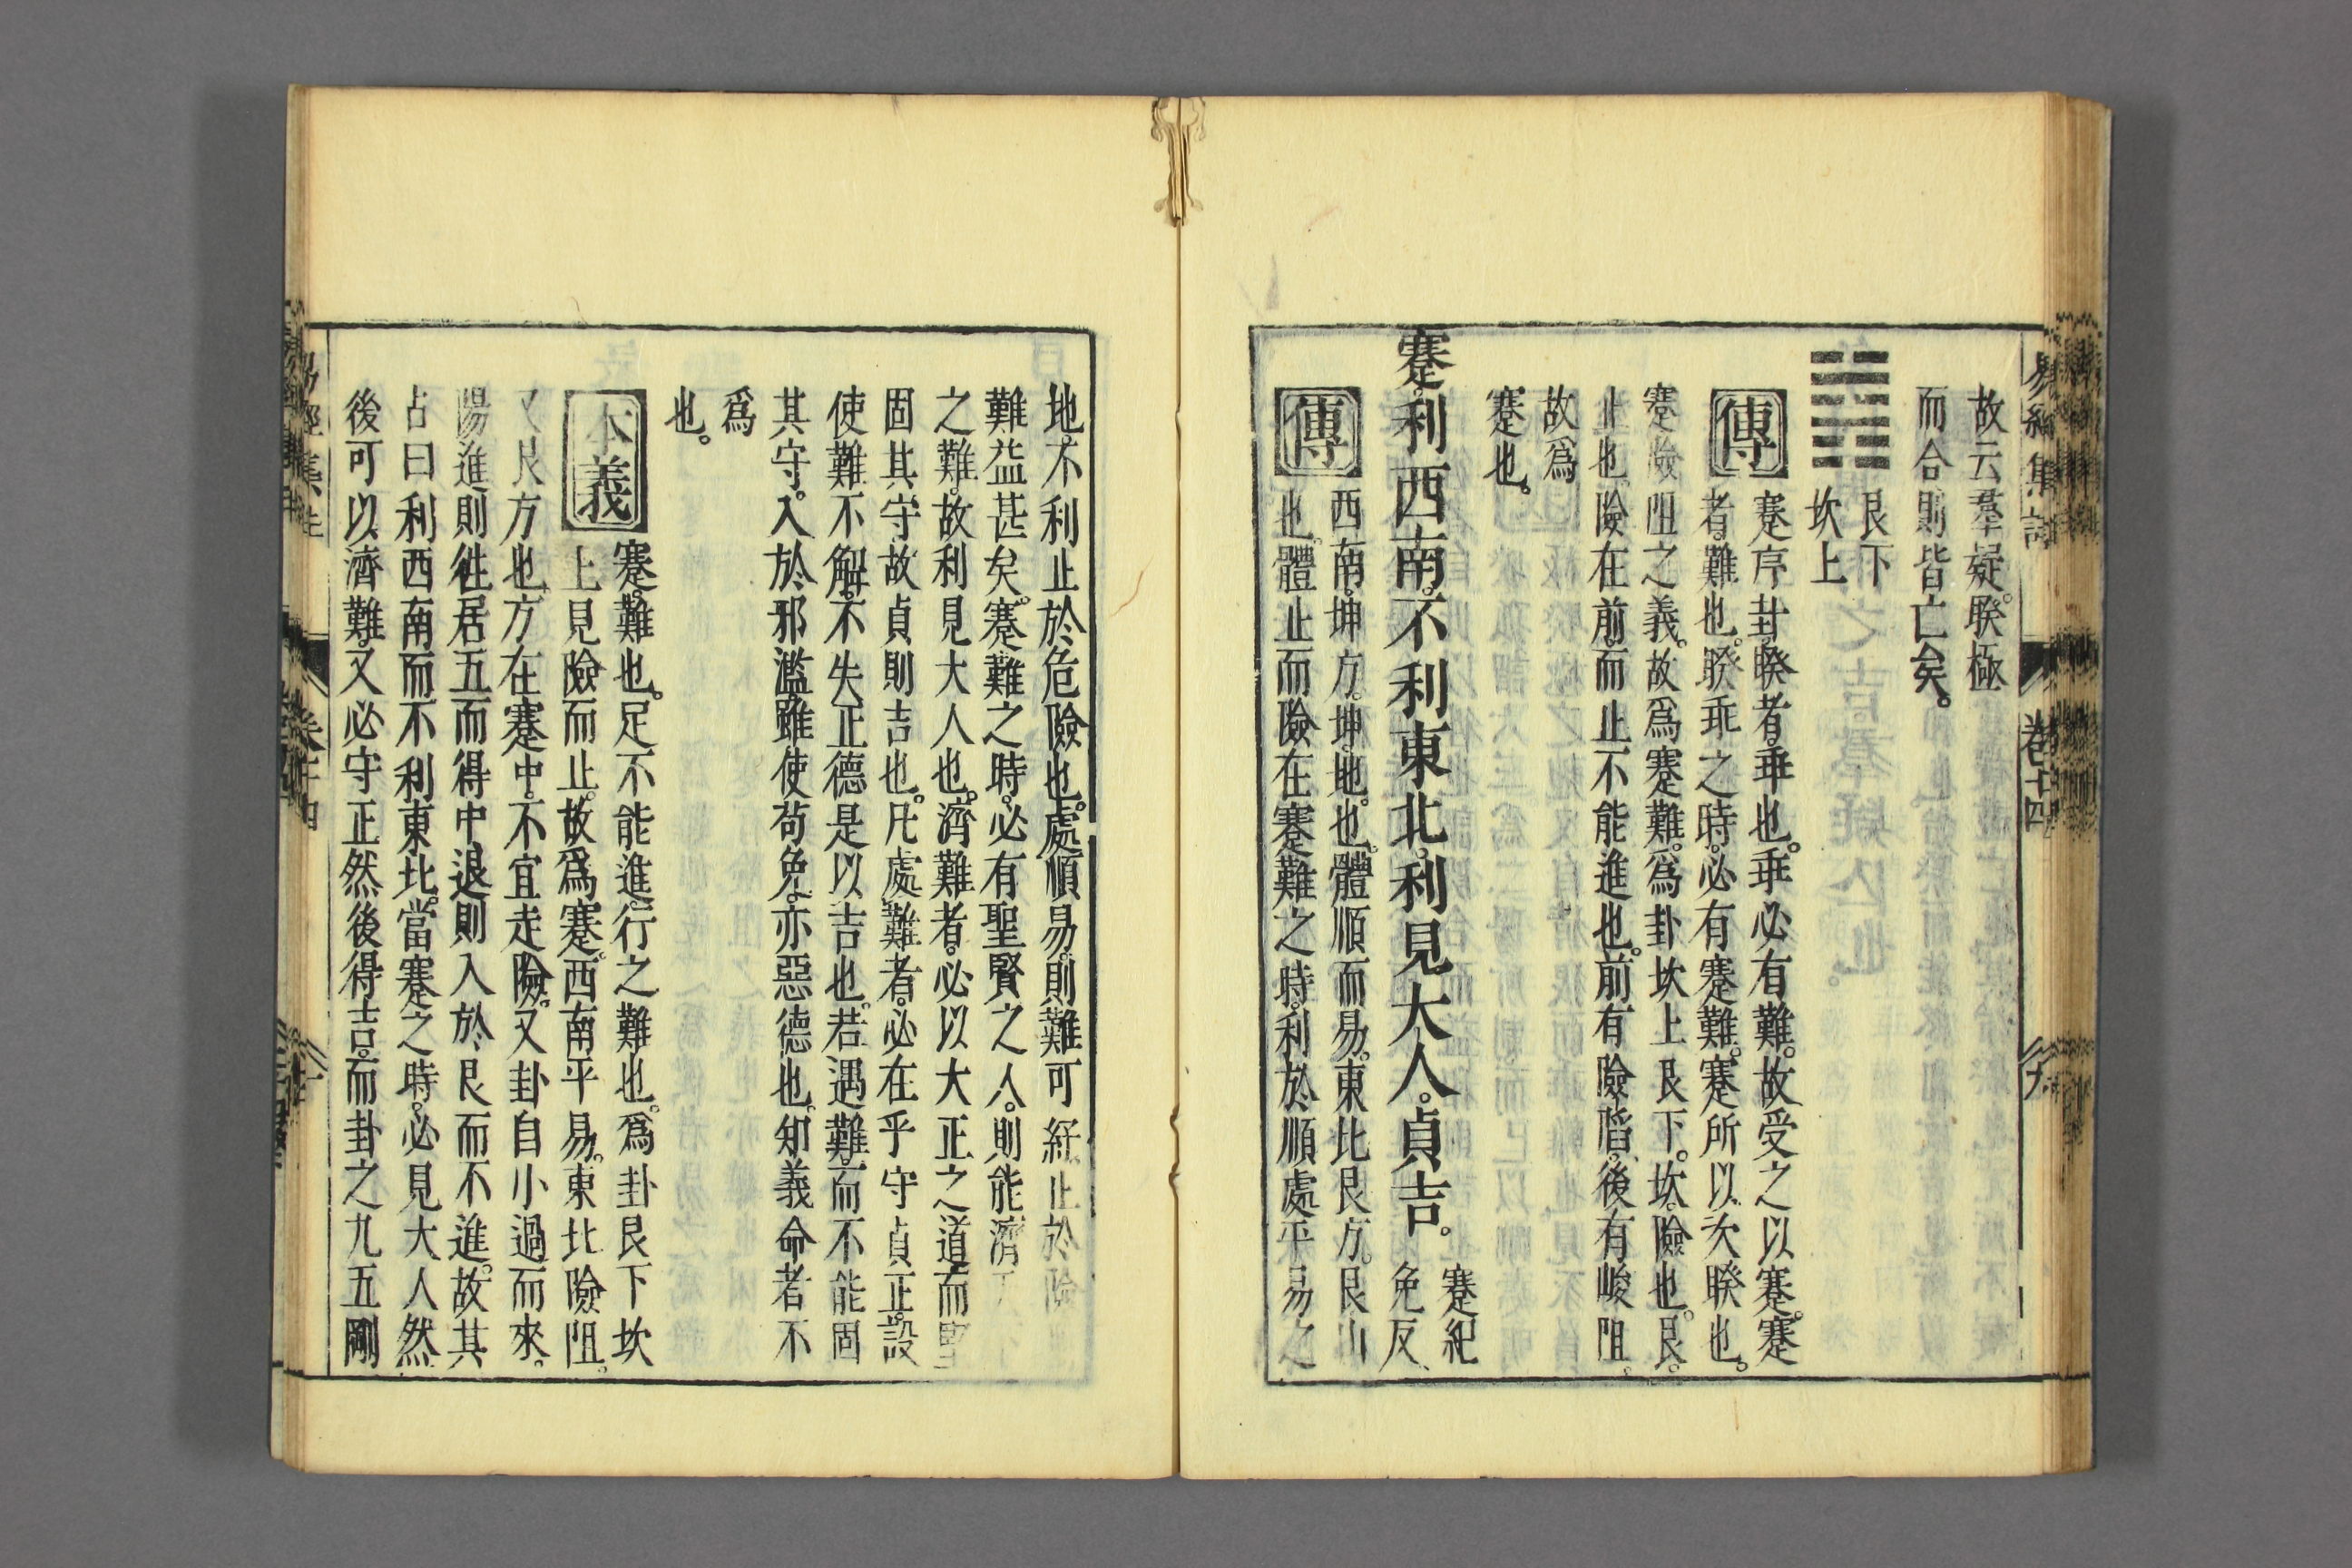 故云羣疑。睽極
而合則皆亡矣。
艮下
坎上
傳
蹇序卦。睽者。乖也。乖必有難。故受之以蹇。蹇
者。難也。睽乖之時。必有蹇難。蹇所以次睽也。
蹇險阻之義。故爲蹇難。爲卦坎上艮下。坎。險也。艮。
止也。險在前。而止不能進也。前有險陷。後有峻阻。
故爲
蹇也。
蹇。利西南。不利東北。利見大人。貞吉。
蹇紀
免反、
傳
西南。坤方。坤。地。也。體順而易。東北艮方。艮山
也。體止而險在蹇難之時。利於順處平易之
易經集註 卷十四 九
地不利止於危險也。處順易。則難可紓。止於險
難益甚矣。蹇難之時。必有聖賢之人。則能濟
之難。故利見大人也。濟難者。必以大正之道而堅
固其守。故貞則吉也。凡處難者。必在乎守貞正。設
使難不解。不失正德是以吉也。若遇難。而不能固
其守。入於邪濫。雖使苟免。亦惡德也。知義命者不
爲
也。
本義
蹇。難也。足不能進。行之難也。爲卦艮下坎
上見險而止。故爲蹇。西南平易。東北險阻。
又艮方也。方在蹇中。不宜走險。又卦自小過而來。
陽進則往居五而得中。退則入於艮而不進。故其
占曰利西南而不利東北。當蹇之時。必見大人然
後可以濟難。又必守正然後得吉。而卦之九五剛
易經集註 卷十四